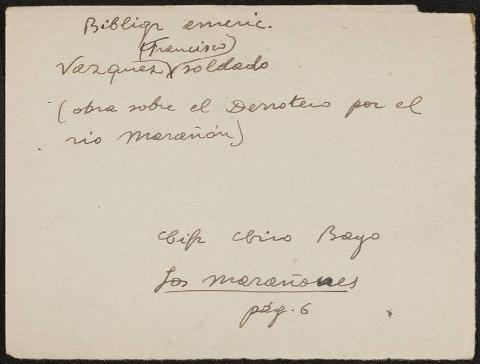 Bibligr americ.
(Francisco)
Vazquez, soldado
(obra sobre el Derrotero por el
rio Marañón)
Ciro Bayo
Los Marañones
pág. 6